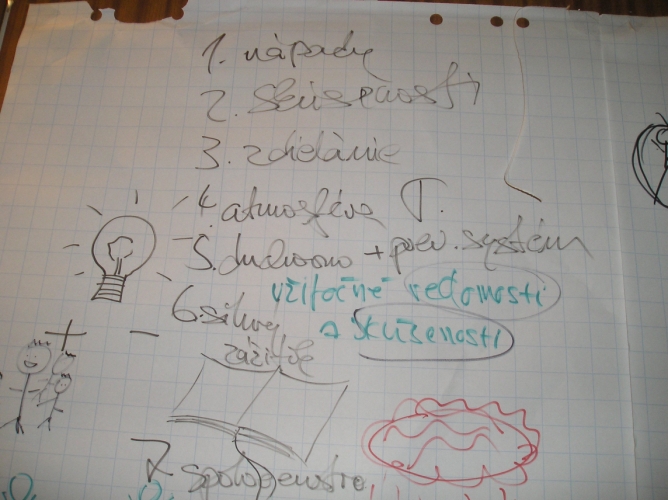 1. nápady
2. skúsenosti
3. zdieľanie
4. atmosféra T.
5. duchovno + prev. systém
užitočné vedomosti
6. silný
a skúsenosti
zážitok
+ -
7 spoločenstvo